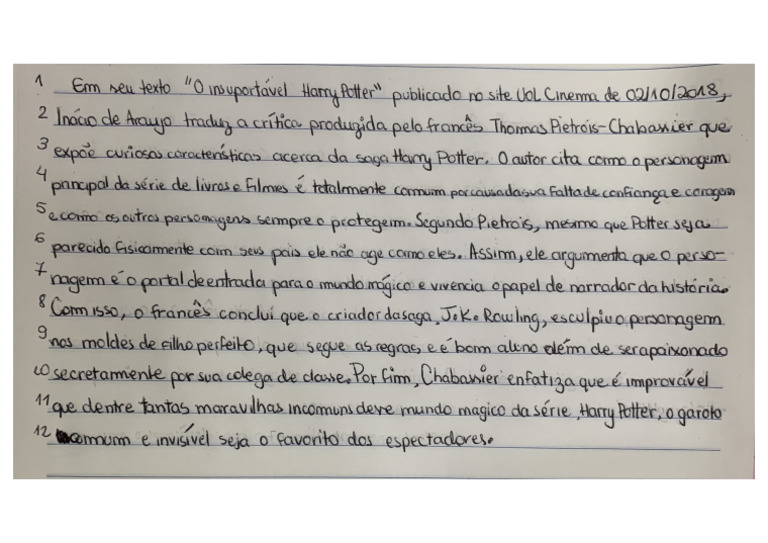 1 Em seu texto "O insuportável Harry Potter" publicado no site UOL Cinema de 02/10/2018,
2 Inácio de Araujo traduz a crítica produzida pelo francês Thomas Pietrois-Chabassier que
3 expõe curiosas características acerca da saga Harry Potter. O autor cita como o personagem
4 principal da série de livros e filmes é totalmente comum por causa da sua falta de confiança e coragem
5 e como os outros personagens sempre o protegem. Segundo Pietrois, mesmo que Potter seja
6 parecido fisicamente com seus pais ele não age como eles. Assim, ele argumenta que o perso-
7 nagem é o portal de entrada para o mundo mágico e vivencia o papel de narrador da história.
8 Com isso, o francês conclui que o criador da saga, J.K. Rowling, esculpiu o personagem
9 nos moldes de filho perfeito, que segue as regras, e é bom aluno além de ser apaixonado
10 secretamente por sua colega de classe. Por fim, Chabassier enfatiza que é improvável
11 que dentre tantas maravilhas incomuns deve mundo magico da série, Harry Potter, o garoto
12 comum e invisível seja o favorito dos espectadores.